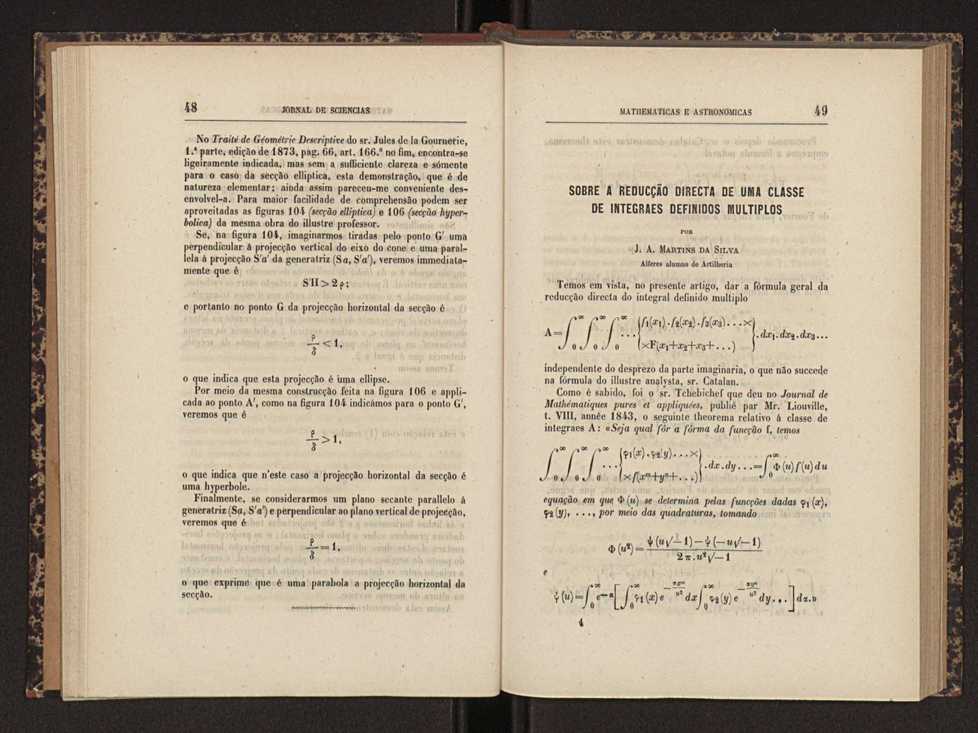 48
JORNAL DE SCIENCIAS
No Traité de Géométrie Descriptive do sr. Jules de la Gournerie,
1.ª parte, edição de 1873, pag. 66, art. 166.º no fim, encontra-se
ligeiramente indicada, mas sem a sufficiente clareza e sómente
para o caso da secção elliptica, esta demonstração, que é de
natureza elementar; ainda assim pareceu-me conveniente des-
envolvel-a. Para maior facilidade de comprehensão podem ser
aproveitadas as figuras 104 (secção elliptica) e 106 (secção hyper-
bolica) da mesma obra do illustre professor.
Se, na figura 104, imaginarmos tiradas pelo ponto G' uma
perpendicular á projecção vertical do eixo do cone e uma paral-
lela á projecção S'a' da generatriz (Sa, S'a'), veremos immediata-
mente que é
S'H > 2ρ;
e portanto no ponto G da projecção horizontal da secção é
ρ/δ < 1,
o que indica que esta projecção é uma ellipse.
Por meio da mesma construcção feita na figura 106 e appli-
cada ao ponto A', como na figura 104 indicámos para o ponto G',
veremos que é
ρ/δ > 1,
o que indica que n'este caso a projecção horizontal da secção é
uma hyperbole.
Finalmente, se considerarmos um plano secante parallelo á
generatriz (Sa, S'a') e perpendicular ao plano vertical de projecção,
veremos que é
ρ/δ = 1,
o que exprime que é uma parabola a projecção horizontal da
secção.
MATHEMATICAS E ASTRONOMICAS
49
SOBRE A REDUCÇÃO DIRECTA DE UMA CLASSE
DE INTEGRAES DEFINIDOS MULTIPLOS
POR
J. A. MARTINS DA SILVA
Alferes alumno de Artilheria
Temos em vista, no presente artigo, dar a fórmula geral da
reducção directa do integral definido multiplo
A=∫₀^∞ ∫₀^∞ ∫₀^∞ ... {f₁(x₁).f₂(x₂).f₃(x₃)...× ×F(x₁+x₂+x₃+...)}.dx₁.dx₂.dx₃...
independente do desprezo da parte imaginaria, o que não succede
na fórmula do illustre analysta, sr. Catalan.
Como é sabido, foi o sr. Tchebichef que deu no Journal de
Mathématiques pures et appliquées, publié par Mr. Liouville,
t. VIII, année 1843, o seguinte theorema relativo á classe de
integraes A: «Seja qual fôr a fórma da funcção f, temos
∫₀^∞ ∫₀^∞ ∫₀^∞ ... {φ₁(x).φ₂(y)...× ×f(xⁿ+yⁿ+...)}.dx.dy...=∫₀^∞ Φ(u)f(u)du
equação em que Φ(u) se determina pelas funcções dadas φ₁(x),
φ₂(y), ..., por meio das quadraturas, tomando
Φ(u²)=ψ(u√−1)−ψ(−u√−1)/2π.u²√−1
e
ψ(u)=∫₀^∞ e^−α[∫₀^∞ φ₁(x)e^−αxⁿ/u² dx∫₀^∞ φ₂(y)e^−αyⁿ/u² dy...]dα.»
4